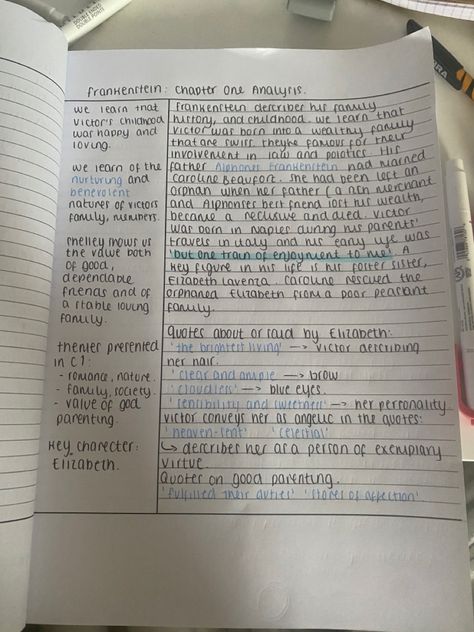 Frankenstein: Chapter One Analysis.
We learn that
Victor's childhood
was happy and
loving.
We learn of the
nurturing and
benevolent
natures of Victors
family, numbers.
Shelley shows us
the value both
of good,
dependable
friends and of
a stable loving
family.
Themes presented
in C1:
- romance, nature.
- family, society.
- value of god
parenting.
Key charecter:
Elizabeth.
Frankenstein describes his family
history, and childhood. We learn that
Victor was born into a wealthy family
that are swiss. Theyre famous for their
involvement in law and politics. His
father Alphonse Frankenstein had married
Caroline Beaufort. She had been left an
orphan when her father (a rich merchant
and Alphonses best friend lost his wealth,
became a reclusive and died. Victor
was born in Naples during his parents'
travels in Italy and his early life was
'but one train of enjoyment to me'. A
key figure in his life is his foster sister,
Elizabeth Lavenza. Caroline rescued the
orphaned Elizabeth from a poor peasant
family.
Quotes about or said by Elizabeth:
'the brightest living' —> Victor describing
her hair.
'clear and ample' —> brow
'cloudless' —> blue eyes.
'sensibility and sweetness' —> her personality
Victor conveys her as angelic in the quotes:
'heaven-sent' 'celestial'
↳ describes her as a person of exemplary
virtue.
Quotes on good parenting.
'fulfilled their duties' 'stores of affection'.
DOUBLE SIZE
DOUBLE POINTE